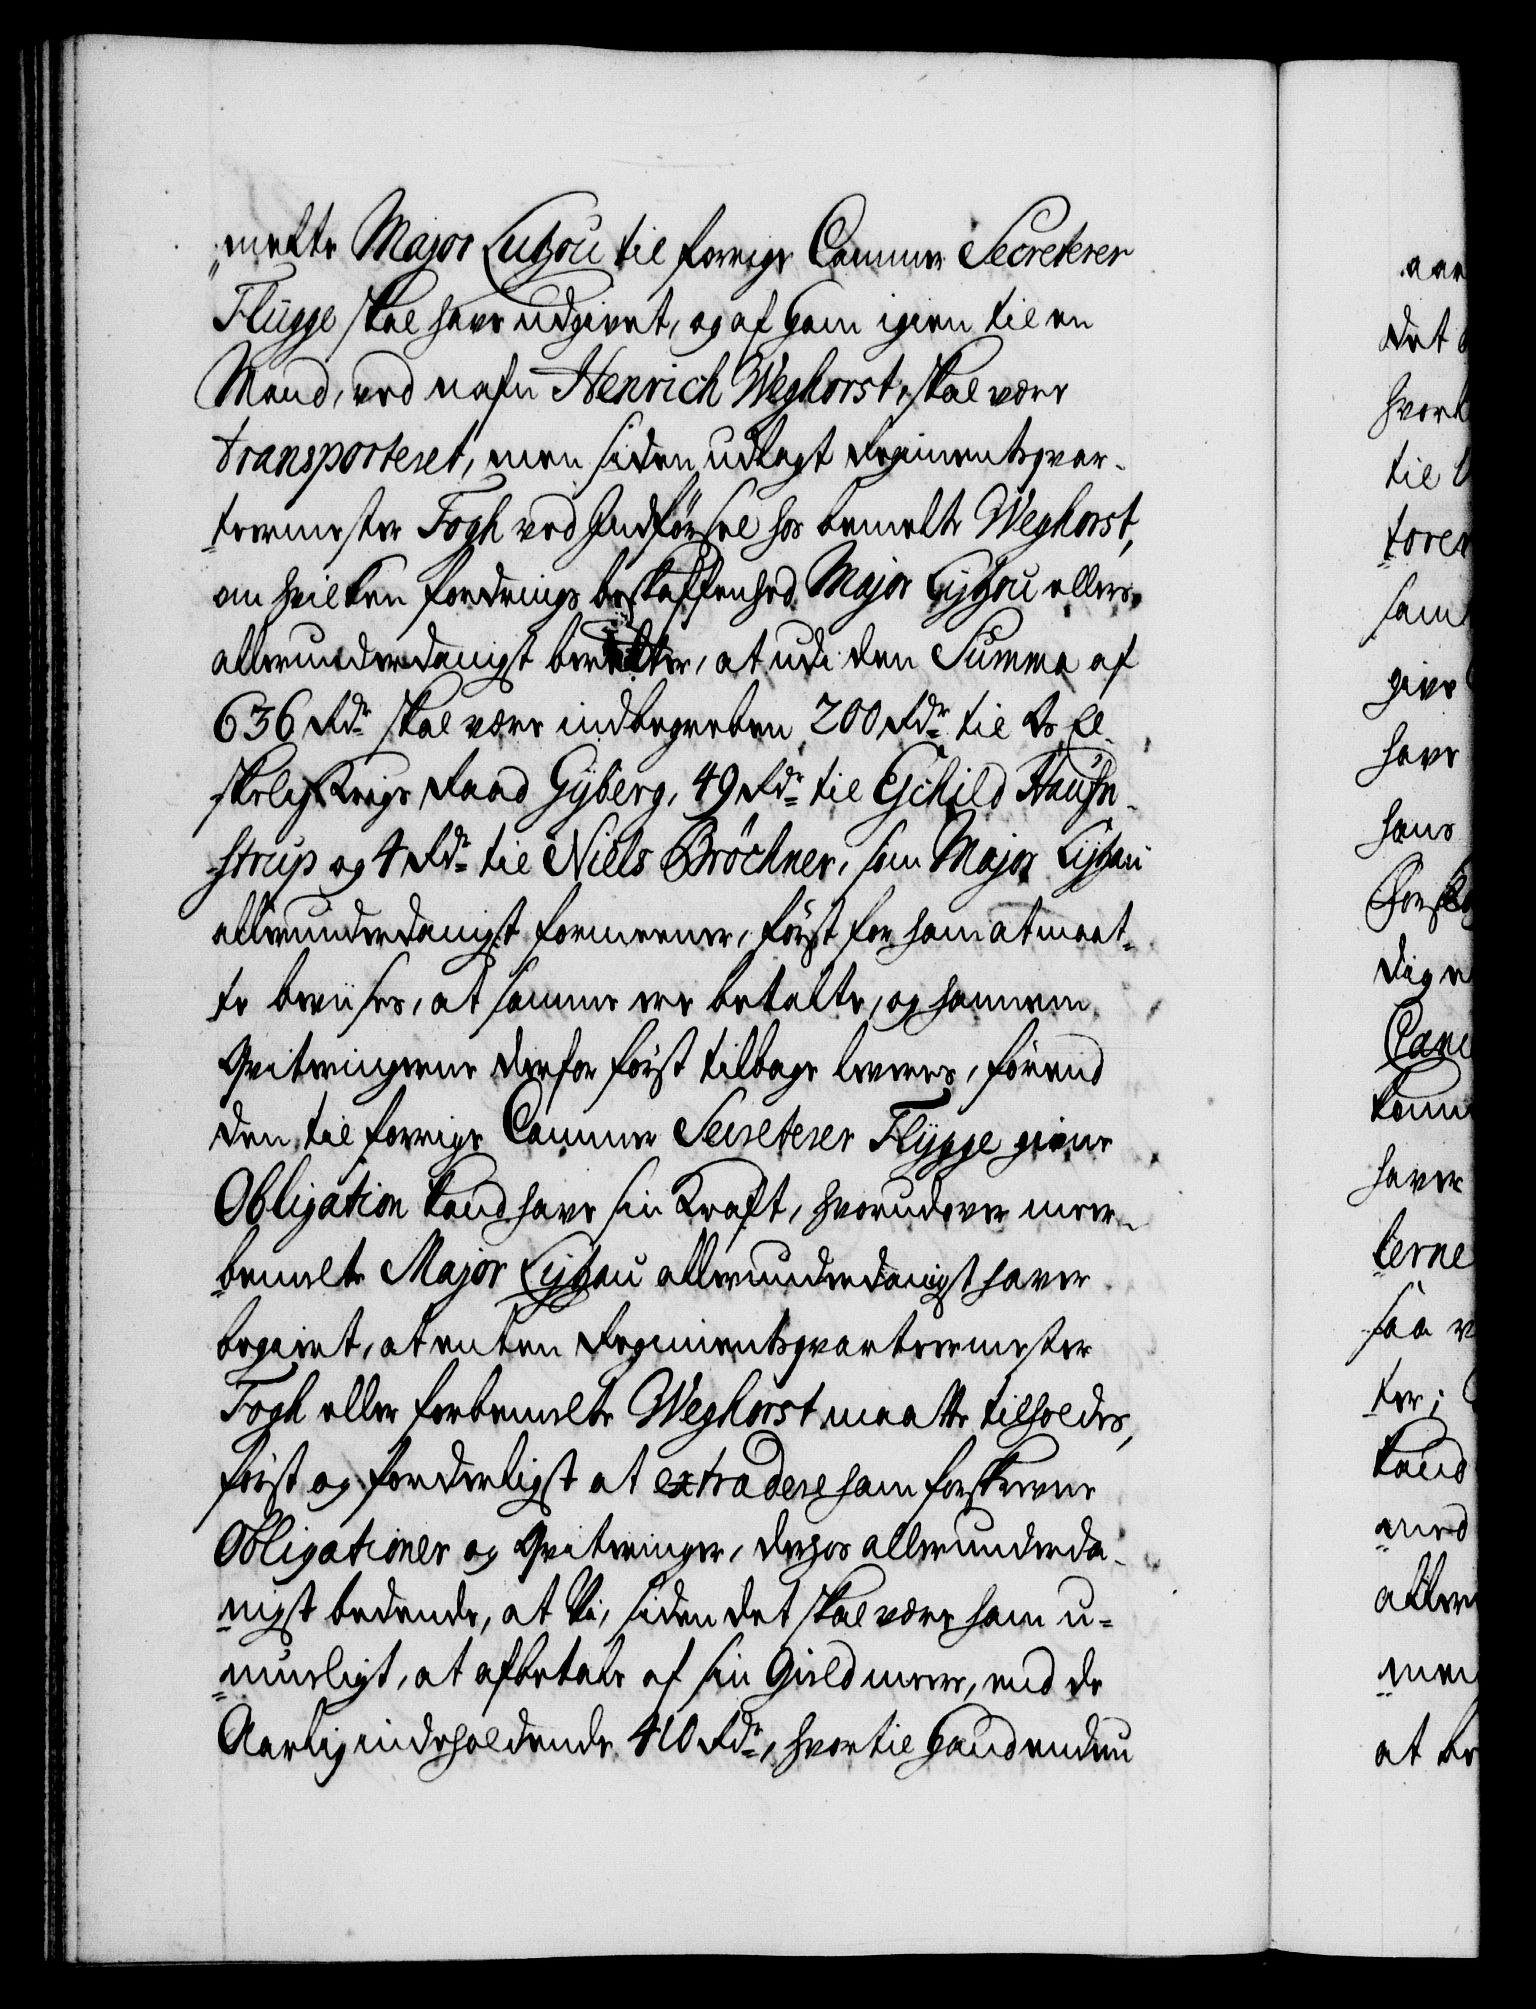 „melte Major Lützou til forrige Cammer Secreterer
Flügge skal have udgivet, og af ham igien til en
Mand, ved nafn Henrich Weghorst, skal være
transporteret, men siden udlagt Regimentsqvar-
teermester Fogh ved Indførsel hos bemelte Weghorst,
om hvilken fordrings beskaffenhed Major Lytzou ellers
allerunderdanigst beretter, at udi den Summa af
636 Rdr skal være indbegreben 200 Rdr til Os El-
skelig Krigs Raad Gyberg, 49 Rdr til Eschild
-strup og 4 Rdr til Niels Bröchner, som Major Lytzau
allerunderdanigst formeener, først for ham at maat-
te beviises, at samme ere betalte, og hannem
Qviteringerne derfor først tilbage leveres, førend
den til forrige Cammer Secreterer Flygge givne
Obligation kand have sin Kraft, hvorudover meer-
bemelte Major Lytzau allerunderdanigst haver
begiert, at enten Regimentsqvarteermester
Fogh eller forbemelte Weghorst maatte tilholdes,
først og forderligst at extradere ham forskrevne
Obligationer og Qviteringer, derhos allerunderda-
nigst bedende, at Vi, siden det skal være ham u-
mueligt, at afbetale af sin Gield meere, end de
Aarlig indeholdende 410 Rdr, hvortil hand endnu
aar
det
hvor
til
torer
som
give
have
hans
dig
Canc
komm
haver
terne
saa
ter;
kand
med
aller
men
at be